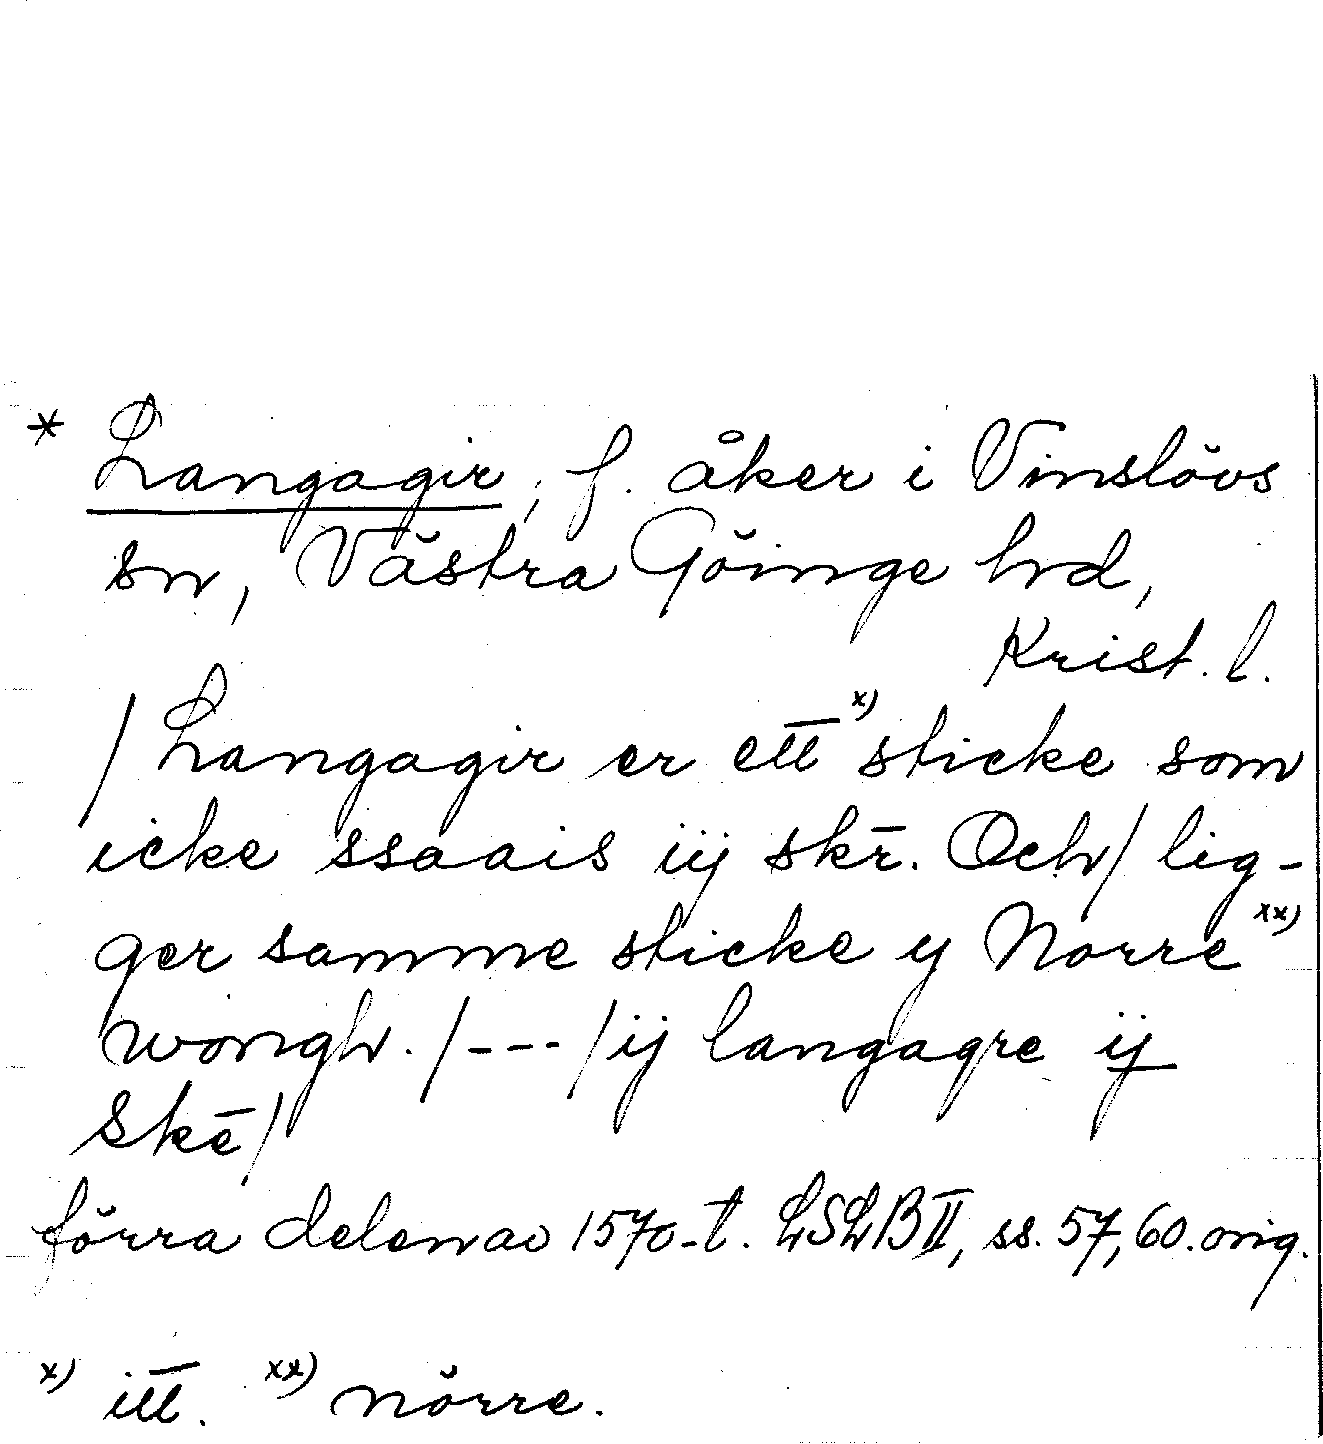 * Langagir, f. åker i Vinslövs
sn, Västra Göinge hd,
Krist. l.
/Langagir er ett x) sticke som
icke ssaais iij skr̄. Och/ lig-
ger samme sticke y Norre xx)
wongh. /---/ ij langagre ij
skē/
förra delen av 1570-t. LSLB II, ss. 57, 60. orig.
x) itt. xx) nörre.